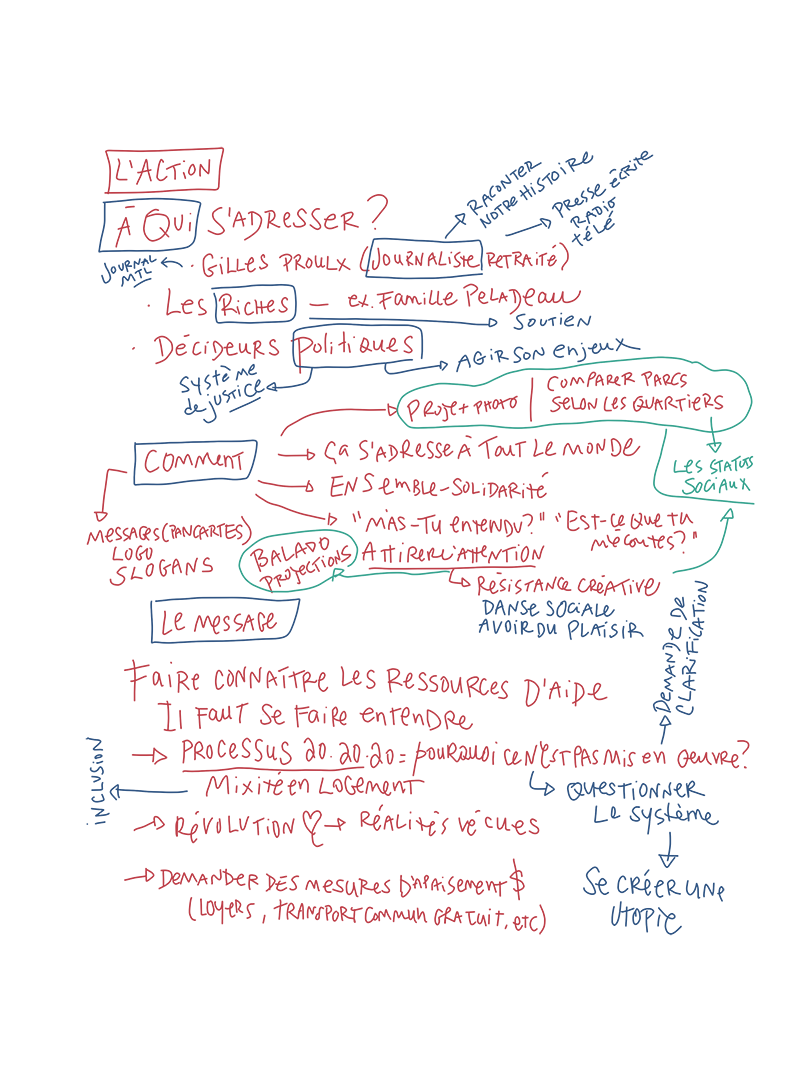 L'ACTION
À QUI S'ADRESSER ?
RACONTER
NOTRE HISTOIRE
PRESSE ÉCRITE
RADIO
TÉLÉ
JOURNAL
MTL
· GILLES PROULX (JOURNALISTE RETRAITÉ)
· LES RICHES — ex. FAMILLE PELADEAU
SOUTIEN
· DÉCIDEURS POLITIQUES
AGIR SON ENJEUX
SYSTÈME
de JUSTICE
PROJET PHOTO | COMPARER PARCS
SELON LES QUARTIERS
LES STATUTS
SOCIAUX
COMMENT
ÇA S'ADRESSE À TOUT LE MONDE
ENSEMBLE-SOLIDARITÉ
"M'AS-TU ENTENDU?" "EST-CE QUE TU
M'ÉCOUTES?"
MESSAGES (PANCARTES)
LOGO
SLOGANS
BALADO
PROJECTIONS
ATTIRER L'ATTENTION
RÉSISTANCE CRÉATIVE
DANSE SOCIALE
AVOIR DU PLAISIR
LE MESSAGE
DEMANDE DE
CLARIFICATION
FAIRE CONNAÎTRE LES RESSOURCES D'AIDE
IL FAUT SE FAIRE ENTENDRE
PROCESSUS 20.20.20 = POURQUOI CE N'EST PAS MIS EN OEUVRE?
MIXITÉ EN LOGEMENT
INCLUSION
QUESTIONNER
LE SYSTÈME
RÉVOLUTION → RÉALITÉS VÉCUES
SE CRÉER UNE
UTOPIE
DEMANDER DES MESURES D'APAISEMENT $
(LOYERS, TRANSPORT COMMUN GRATUIT, ETC)